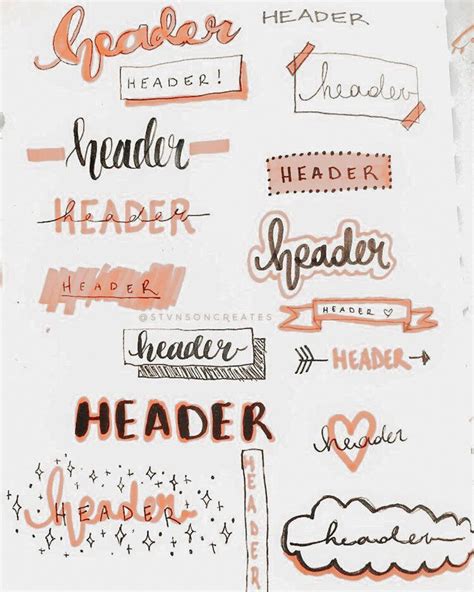 header
HEADER
HEADER!
header
header
HEADER
HEADER
header
header
HEADER
HEADER
@STVNSONCREATES
HEADER ♡
header
HEADER
HEADER
header
header
HEADER
HEADER
header